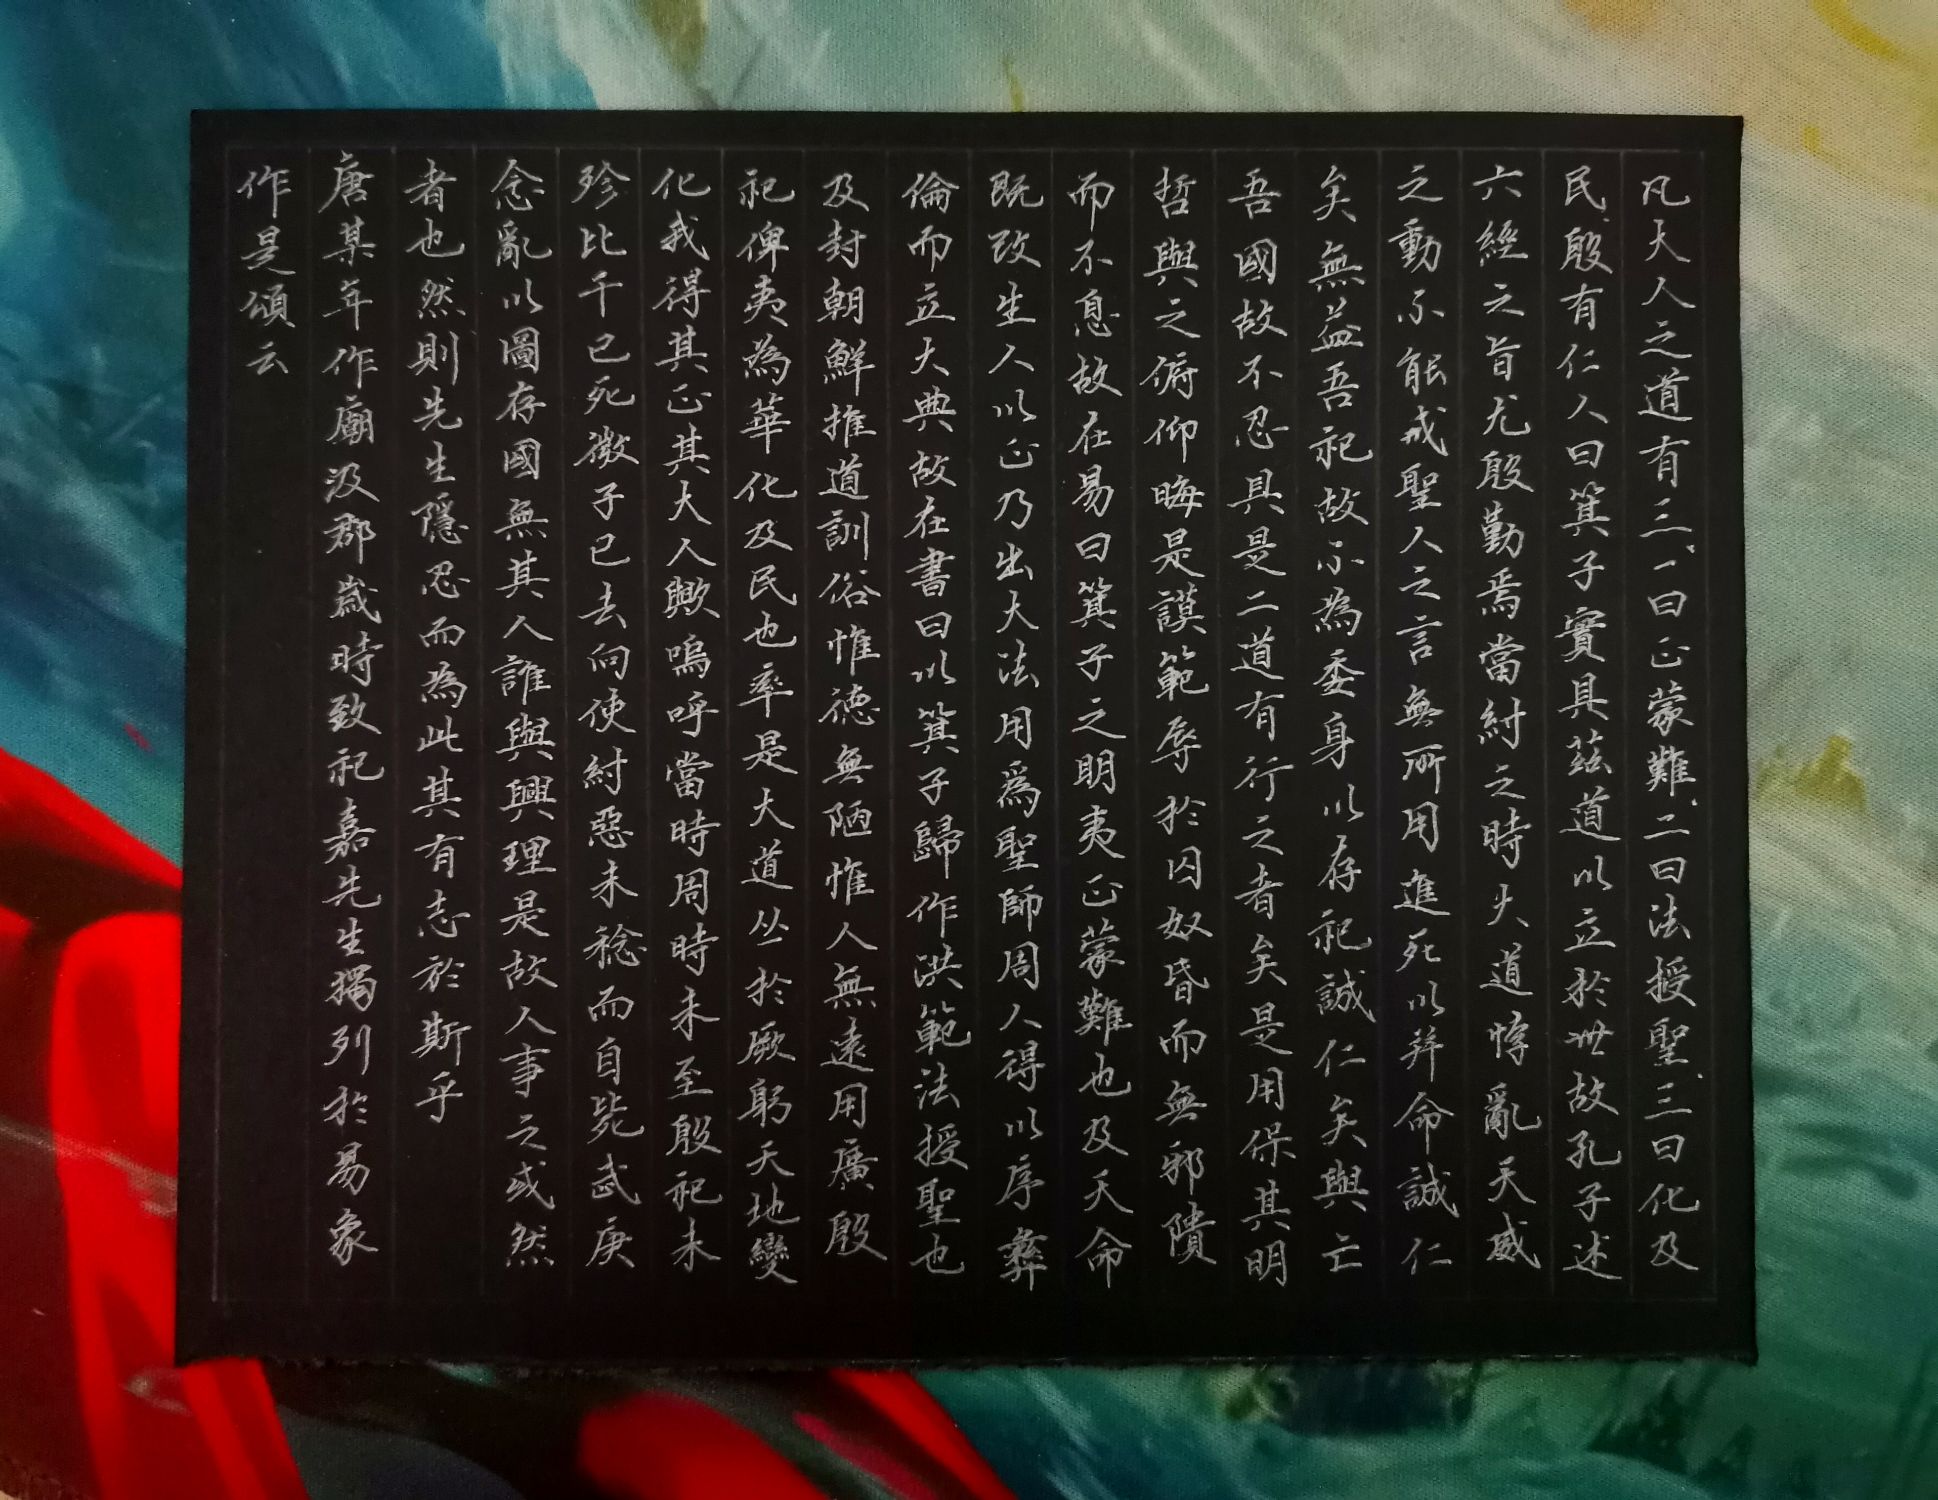 凡大人之道有三、一曰正蒙難、二曰法授聖、三曰化及
民、殷有仁人曰箕子實具茲道以立於世故孔子述
六經之旨尤殷勤焉當紂之時大道悖亂天威
之動不能戒聖人之言無所用進死以并命誠仁
矣無益吾祀故不為委身以存祀誠仁矣與亡
吾國故不忍具是二道有行之者矣是用保其明
哲與之俯仰晦是謨範辱於囚奴昏而無邪隤
而不息故在易曰箕子之明夷正蒙難也及天命
既改生人以正乃出大法用爲聖師周人得以序彝
倫而立大典故在書曰以箕子歸作洪範法授聖也
及封朝鮮推道訓俗惟德無陋惟人無遠用廣殷
祀俾夷為華化及民也率是大道丛於厥躬天地變
化我得其正其大人歟嗚呼當時周時未至殷祀未
殄比干已死微子已去向使紂惡未稔而自斃武庚
念亂以圖存國無其人誰與興理是故人事之或然
者也然則先生隱忍而為此其有志於斯乎
唐某年作廟汲郡歲時致祀嘉先生獨列於易象
作是頌云